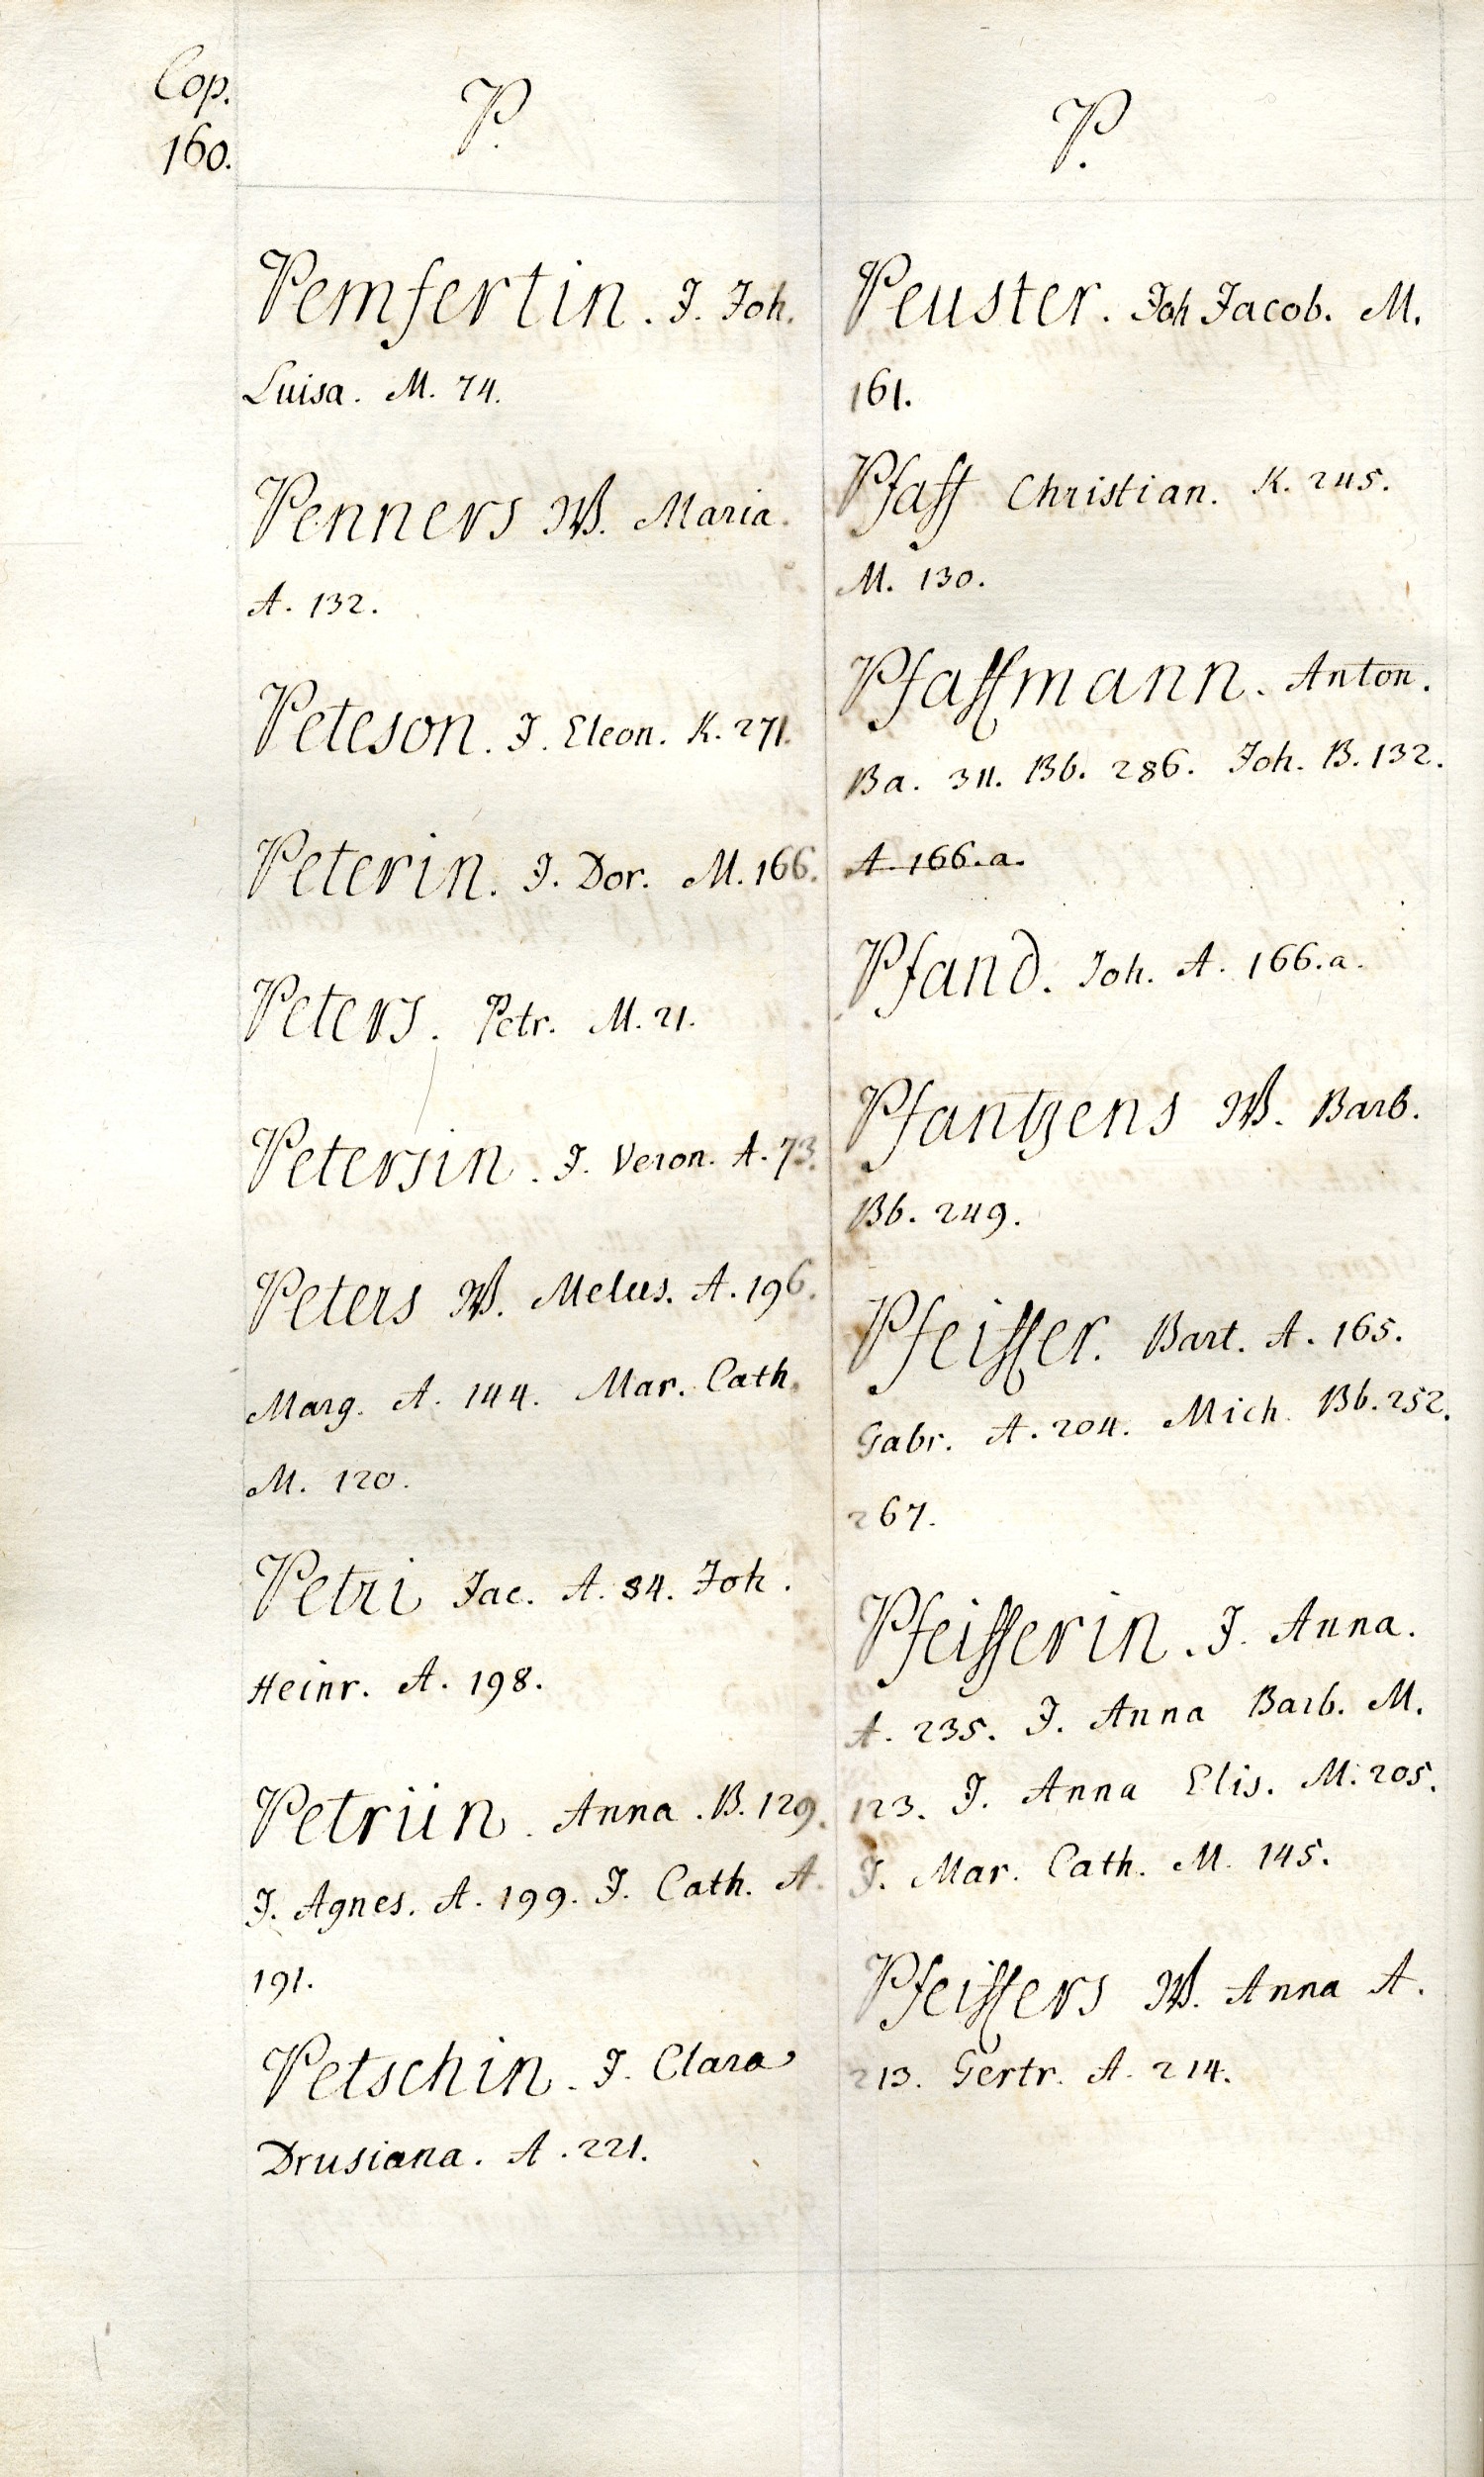 Cop.
160.
P.
Pemfertin. J. Joh.
Luisa. M. 74.
Penners W. Maria.
A. 132.
Peteson. J. Eleon. K. 271.
Peterin. J. Dor. M. 166.
Peters. Petr. M. 21.
Petersin. J. Veron. A. 73.
Peters W. Melus. A. 196.
Marg. A. 144. Mar. Cath.
M. 120.
Petri Jac. A. 84. Joh.
Heinr. A. 198.
Petriin. Anna. B. 129.
J. Agnes. A. 199. J. Cath. A.
191.
Petschin. J. Clara
Drusiana. A. 221.
P.
Peuster. Joh Jacob. M.
161.
Pfaff Christian. K. 245.
M. 130.
Pfaffmann. Anton.
Ba. 311. Bb. 286. Joh. B. 132.
A. 166. a.
Pfand. Joh. A. 166. a.
Pfantzens W. Barb.
Bb. 249.
Pfeiffer. Bart. A. 165.
Gabr. A. 204. Mich. Bb. 252.
267.
Pfeifferin. J. Anna.
A. 235. J. Anna Barb. M.
123. J. Anna Elis. M. 205.
J. Mar. Cath. M. 145.
Pfeiffers W. Anna A.
213. Gertr. A. 214.